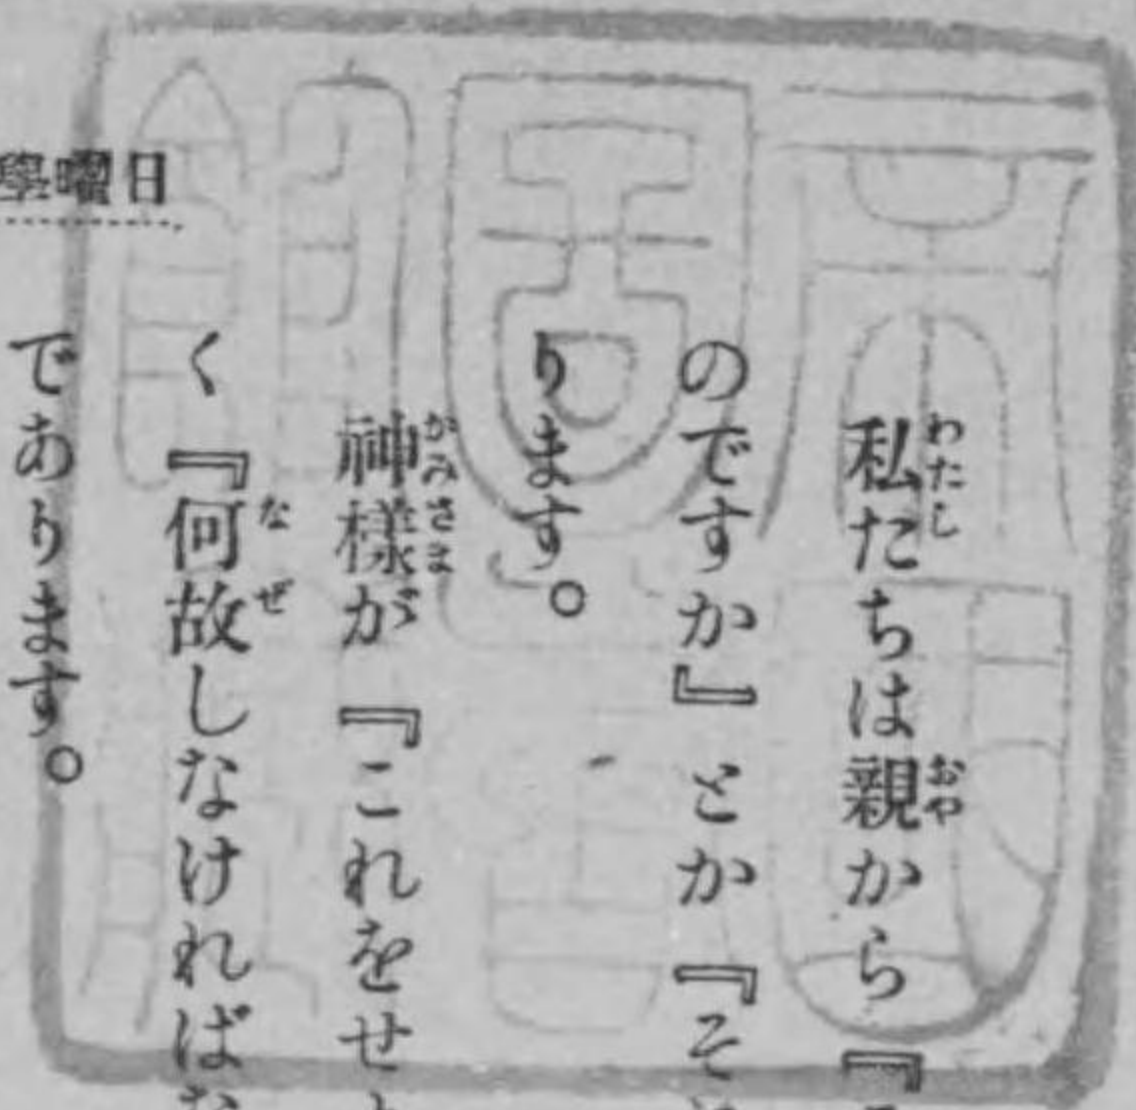 日曜學
私たちは親から『
のですか』とか『そ
ります。
神様が『これをせ
く『何故しなければ
であります。